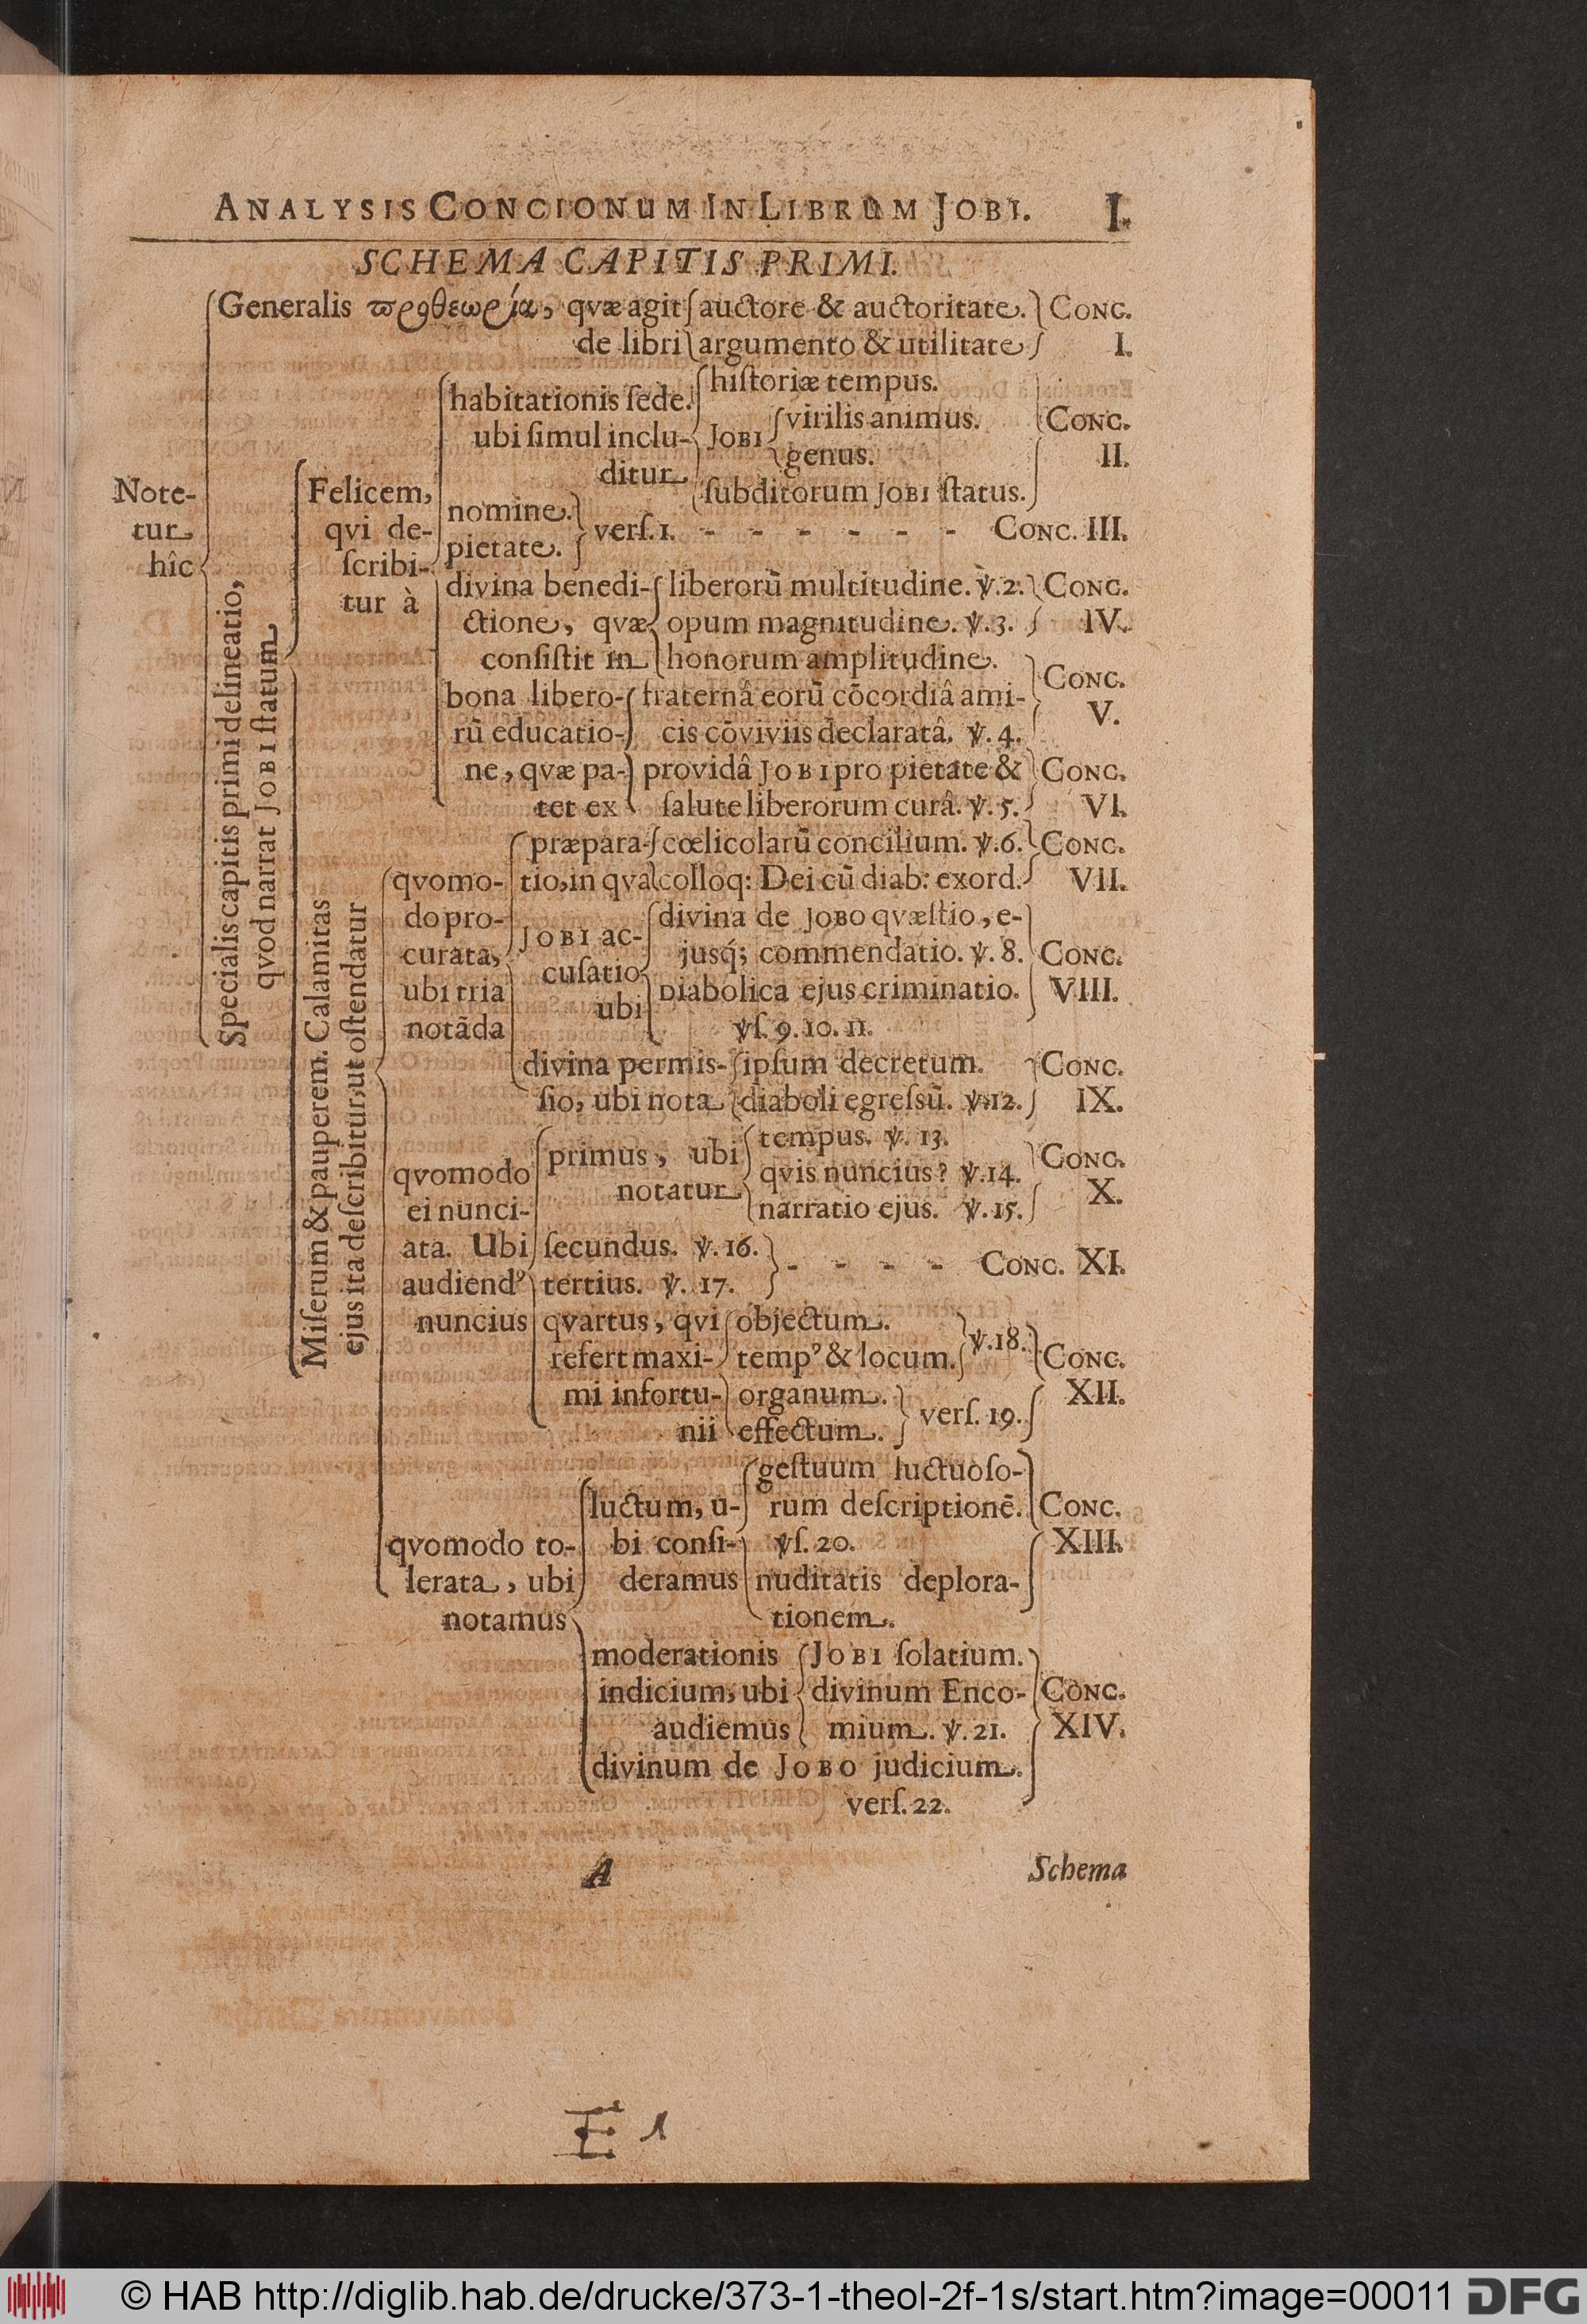 ANALYSIS CONCIONUM IN LIBRUM JOBI. I.
SCHEMA CAPITIS PRIMI.
Generalis ϖροθεωρία, qvæ agit auctore & auctoritate. CONC.
de libri argumento & utilitate I.
hiſtoriæ tempus.
habitationis ſede.
virilis animus. CONC.
ubi ſimul inclu- JOBI
genus. II.
ditur
Note- Felicem, ſubditorum JOBI ſtatus.
nomine.
tur qvi de- verſ. 1. - - - - - - CONC. III.
pietate.
hîc ſcribi-
divina benedi- liberorũ multitudine. ℣. 2. CONC.
tur à
ctione, qvæ opum magnitudine. ℣. 3. IV.
conſiſtit in honorum amplitudine.
CONC.
bona libero- fraternâ eorũ cõcordiâ ami-
V.
rũ educatio- cis cõviviis declaratâ. ℣. 4.
ne, qvæ pa- providâ JOBI pro pietate & CONC.
tet ex ſalute liberorum curâ. ℣. 5. VI.
Specialis capitis primi delineatio,
qvod narrat JOBI ſtatum
Miſerum & pauperem. Calamitas
ejus ita deſcribitur, ut oſtendatur
præpara- cœlicolarũ concilium. ℣. 6. CONC.
qvomo- tio, in qva colloq: Dei cũ diab: exord. VII.
do pro- divina de JOBO qvæſtio, e-
JOBI ac-
curata, jusq́; commendatio. ℣. 8. CONC.
cuſatio
ubi tria Diabolica ejus criminatio. VIII.
ubi
notãda ℣ſ. 9. 10. 11.
divina permis- ipſum decretum. CONC.
ſio, ubi nota diaboli egreſsũ. ℣. 12. IX.
tempus. ℣. 13.
primus, ubi CONC.
qvomodo qvis nuncius? ℣. 14.
notatur X.
ei nunci- narratio ejus. ℣. 15.
ata. Ubi ſecundus. ℣. 16.
- - - - CONC. XI.
audiendꝰ tertius. ℣. 17.
nuncius qvartus, qvi objectum.
℣. 18.
refert maxi- tempꝰ & locum. CONC.
mi infortu- organum. XII.
verſ. 19.
nii effectum.
geſtuum luctuoſo-
luctum, u- rum deſcriptionẽ. CONC.
qvomodo to- bi conſi- ℣ſ. 20. XIII.
lerata, ubi deramus nuditatis deplora-
notamus tionem.
moderationis JOBI ſolatium.
indicium, ubi divinum Enco- CONC.
audiemus mium. ℣. 21. XIV.
divinum de JOBO judicium.
verſ. 22.
A Schema
E 1
© HAB http://diglib.hab.de/drucke/373-1-theol-2f-1s/start.htm?image=00011 DFG